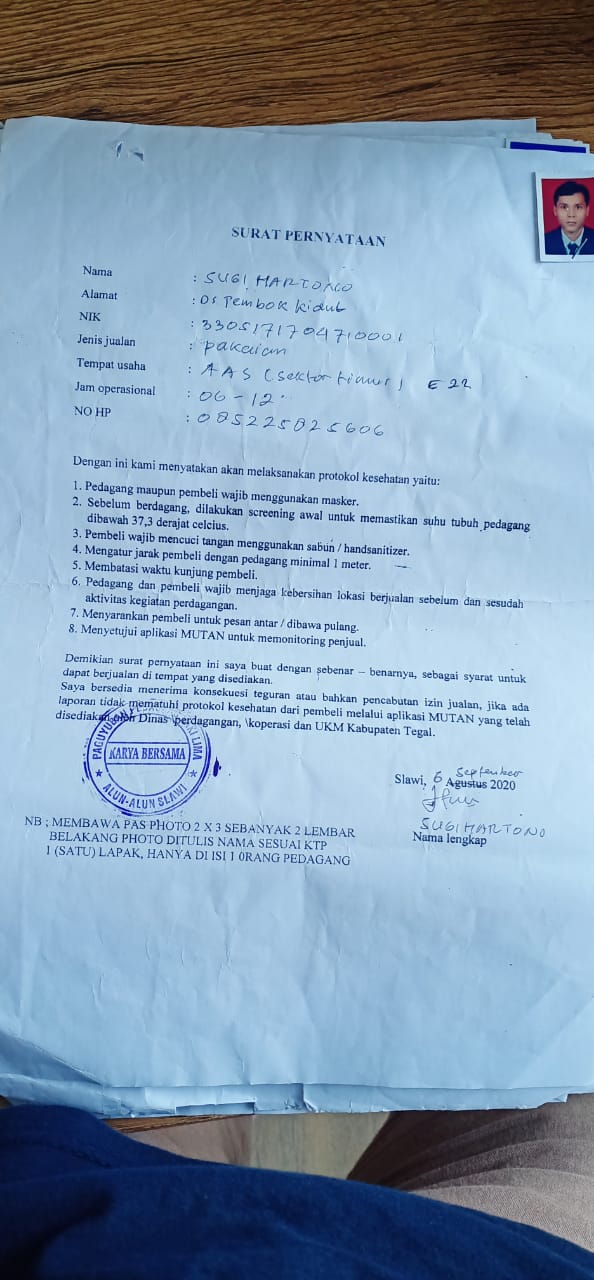 SURAT PERNYATAAN
Nama : SUGI HARTONO
Alamat : DS Pembok kidul
NIK : 3305171704710001
Jenis jualan : pakaian
Tempat usaha : AAS (Sektor timur) E 22
Jam operasional : 06 - 12
NO HP : 085225825606
Dengan ini kami menyatakan akan melaksanakan protokol kesehatan yaitu:
1. Pedagang maupun pembeli wajib menggunakan masker.
2. Sebelum berdagang, dilakukan screening awal untuk memastikan suhu tubuh pedagang
dibawah 37,3 derajat celcius.
3. Pembeli wajib mencuci tangan menggunakan sabun / handsanitizer.
4. Mengatur jarak pembeli dengan pedagang minimal 1 meter.
5. Membatasi waktu kunjung pembeli.
6. Pedagang dan pembeli wajib menjaga kebersihan lokasi berjualan sebelum dan sesudah
aktivitas kegiatan perdagangan.
7. Menyarankan pembeli untuk pesan antar / dibawa pulang.
8. Menyetujui aplikasi MUTAN untuk memonitoring penjual.
Demikian surat pernyataan ini saya buat dengan sebenar – benarnya, sebagai syarat untuk
dapat berjualan di tempat yang disediakan.
Saya bersedia menerima konsekuesi teguran atau bahkan pencabutan izin jualan, jika ada
laporan tidak mematuhi protokol kesehatan dari pembeli melalui aplikasi MUTAN yang telah
disediakan oleh Dinas \perdagangan, \koperasi dan UKM Kabupaten Tegal.
PAGUYUBAN LIMA
KARYA BERSAMA
ALUN-ALUN SLAWI
September
Slawi, 6 Agustus 2020
SUGI HARTONO
Nama lengkap
NB ; MEMBAWA PAS PHOTO 2 X 3 SEBANYAK 2 LEMBAR
BELAKANG PHOTO DITULIS NAMA SESUAI KTP
1 (SATU) LAPAK, HANYA DI ISI 1 0RANG PEDAGANG